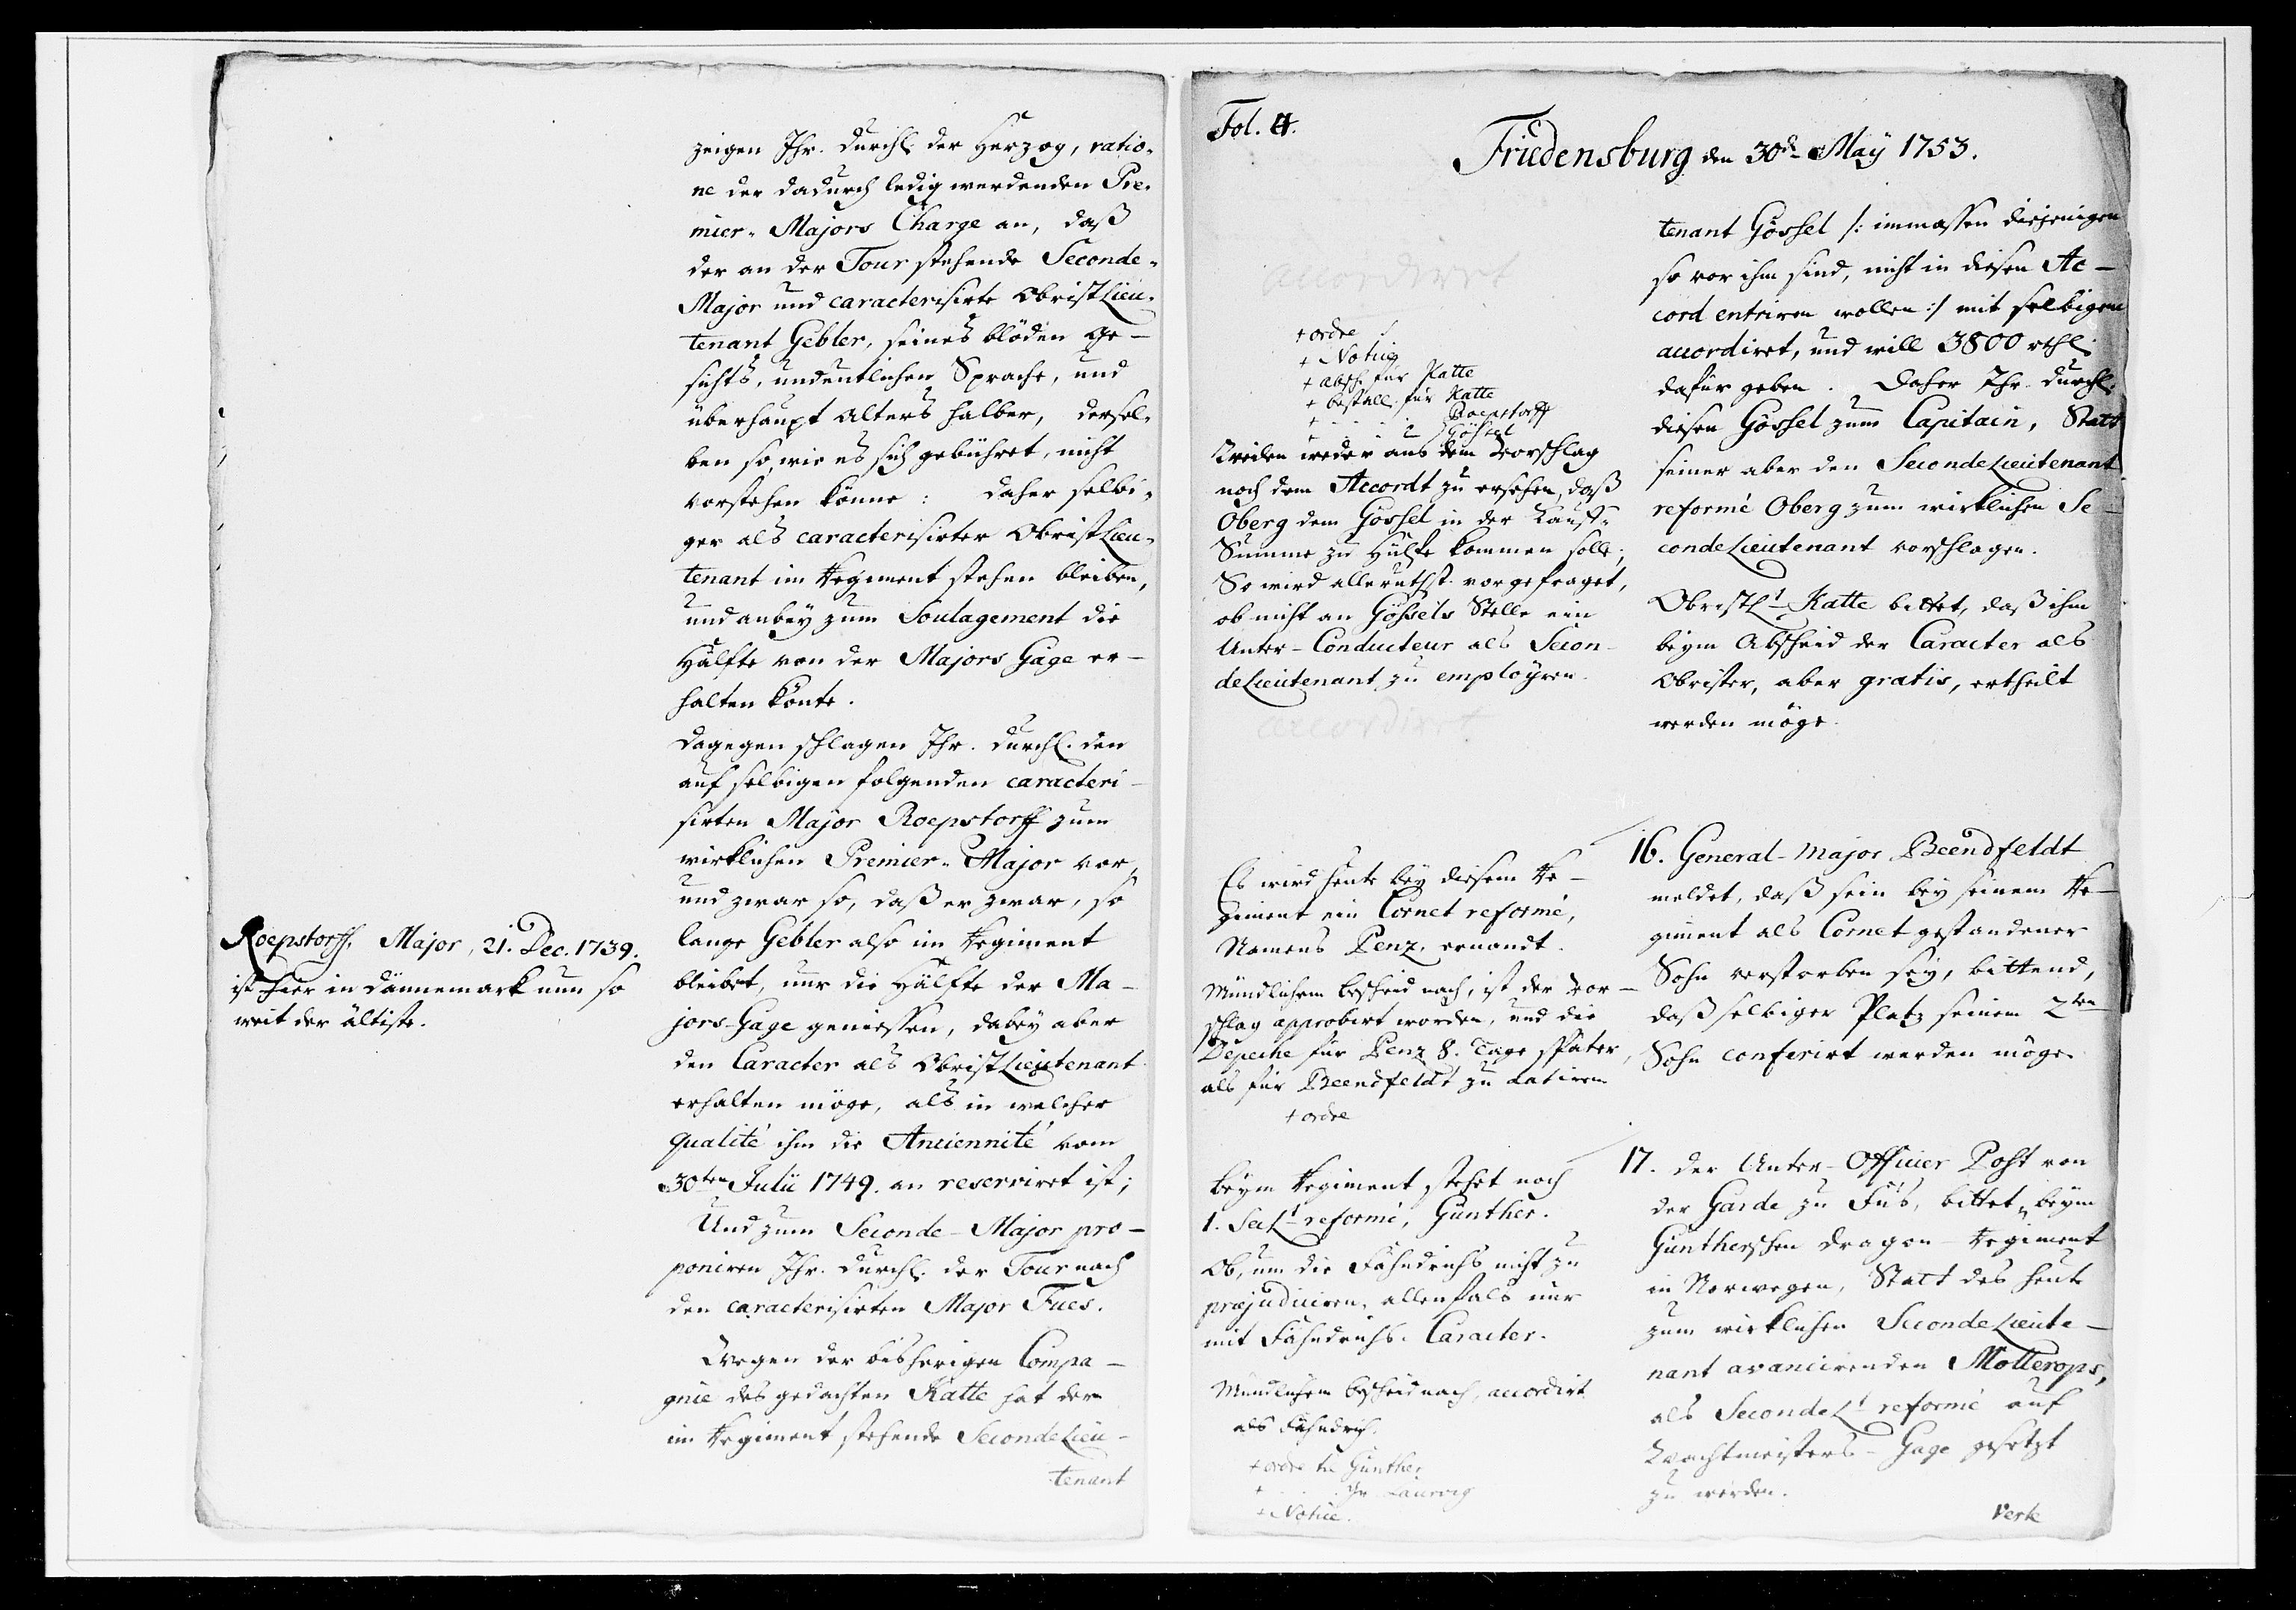 zeigen Ihr. Durchl. der Herzog, ratio-
ne der dadurch ledig werdenden Pre-
mier-Majors Charge an, daß
der an der Tour stehende Seconde-
Major und caracterisirte ObristLieu-
tenant Gebler, seines blöden Ge-
sichts, undeutlichen Sprache, und
überhaupt Alters halber, dersel-
ben so, wie es sich gebühret, nicht
vorstehen könne: daher selbi-
ger als caracterisirter ObristLieu-
tenant im Regiment stehen bleiben,
und anbey zum Soulagement die
Hälfte von der Majors Gage er-
halten könte.
Dagegen schlagen Ihr. Durchl. den
auf selbigen folgenden caracteri-
sirten Major Roepstorff zum
wirklichen Premier-Major vor,
und zwar so, daß er zwar, so
lange Gebler also im Regiment
bleibet, nur die Hälfte der Ma-
jors-Gage geniessen, dabey aber
den Caracter als ObristLieutenant
erhalten möge, als in welcher
qualité ihm die Anciennité vom
30ten Julii 1749. an reserviret ist;
Und zum Seconde-Major pro-
poniren Ihr. Durchl. der Tour nach
den caracterisirten Major Fues.
Wegen der bisherigen Compa-
gnie des gedachten Katte hat der
im Regiment stehende SecondeLieu-
tenant
Roepstorff, Major, 21. Dec. 1739.
ist hier in Dännemark nun so
weit der älteste.
Fol. 4.
Friedensburg den 30ten May 1753.
accordirt
+ ordre
+ Notice
+ Absch. für Katte
+ Bestall. für Katte
+ . . . . Roepstorff
+ . . . . Gössel
Weilen weder aus dem Vorschlag
noch dem Accordt zu ersehen, daß
Oberg dem Gössel in der Kauf-
Summe zu Hülfe kommen solle;
So wird allerunthst. vorgefraget,
ob nicht an Gössels Stelle ein
Unter-Conducteur als Secon-
deLieutenant zu employren.
accordiret
Es wird heute bey diesem Re-
giment ein Cornet reformé,
Namens Penz, ernandt.
Mündlichem Bescheid nach, ist der Vor-
schlag approbirt worden, und die
Depeche für Penz 8. Tage später,
als für Beendfeldt zu datiren
+ ordre
Beym Regiment stehet noch
1. SecLt reformé, Günther.
Ob, um die Fähndrichs nicht zu
præjudiciren, allenfals nur
mit Fähndrichs-Caracter.
Mündlichem Bescheid nach, accordirt
als Fähndrich.
+ ordre Günther
+ . . . Laurvig
+ Notice.
tenant Gössel /: immassen diejenigen
so vor ihm sind, nicht in diesen Ac-
cord entriren wollen :/ mit selbigem
accordiret, und will 3800 rthl.
dafür geben. Daher Ihr. Durchl.
diesen Gössel zum Capitain, Statt
seiner aber den SecondeLieutenant
reformé Oberg zum wirklichen Se-
condeLieutenant vorschlagen.
ObristLt Katte bittet, daß ihm
beym Abscheid der Caracter als
Obrister, aber gratis, ertheilt
werden möge.
16. General-Major Beendfeldt
meldet, daß sein bey seinem Re-
giment als Cornet gestandener
Sohn verstorben sey, bittend,
daß selbiger Platz seinem 2ten
Sohn conferirt werden möge.
17. Der Unter-Officier Post von
der Garde zu Fus, bittet, beym
Güntherschen Dragon-Regiment
in Norwegen, Statt des heute
zum wirklichen SecondeLieute-
nant avancirenden Motterops,
als SecondeLt reformé auf
Wachtmeisters-Gage gesetzt
zu werden.